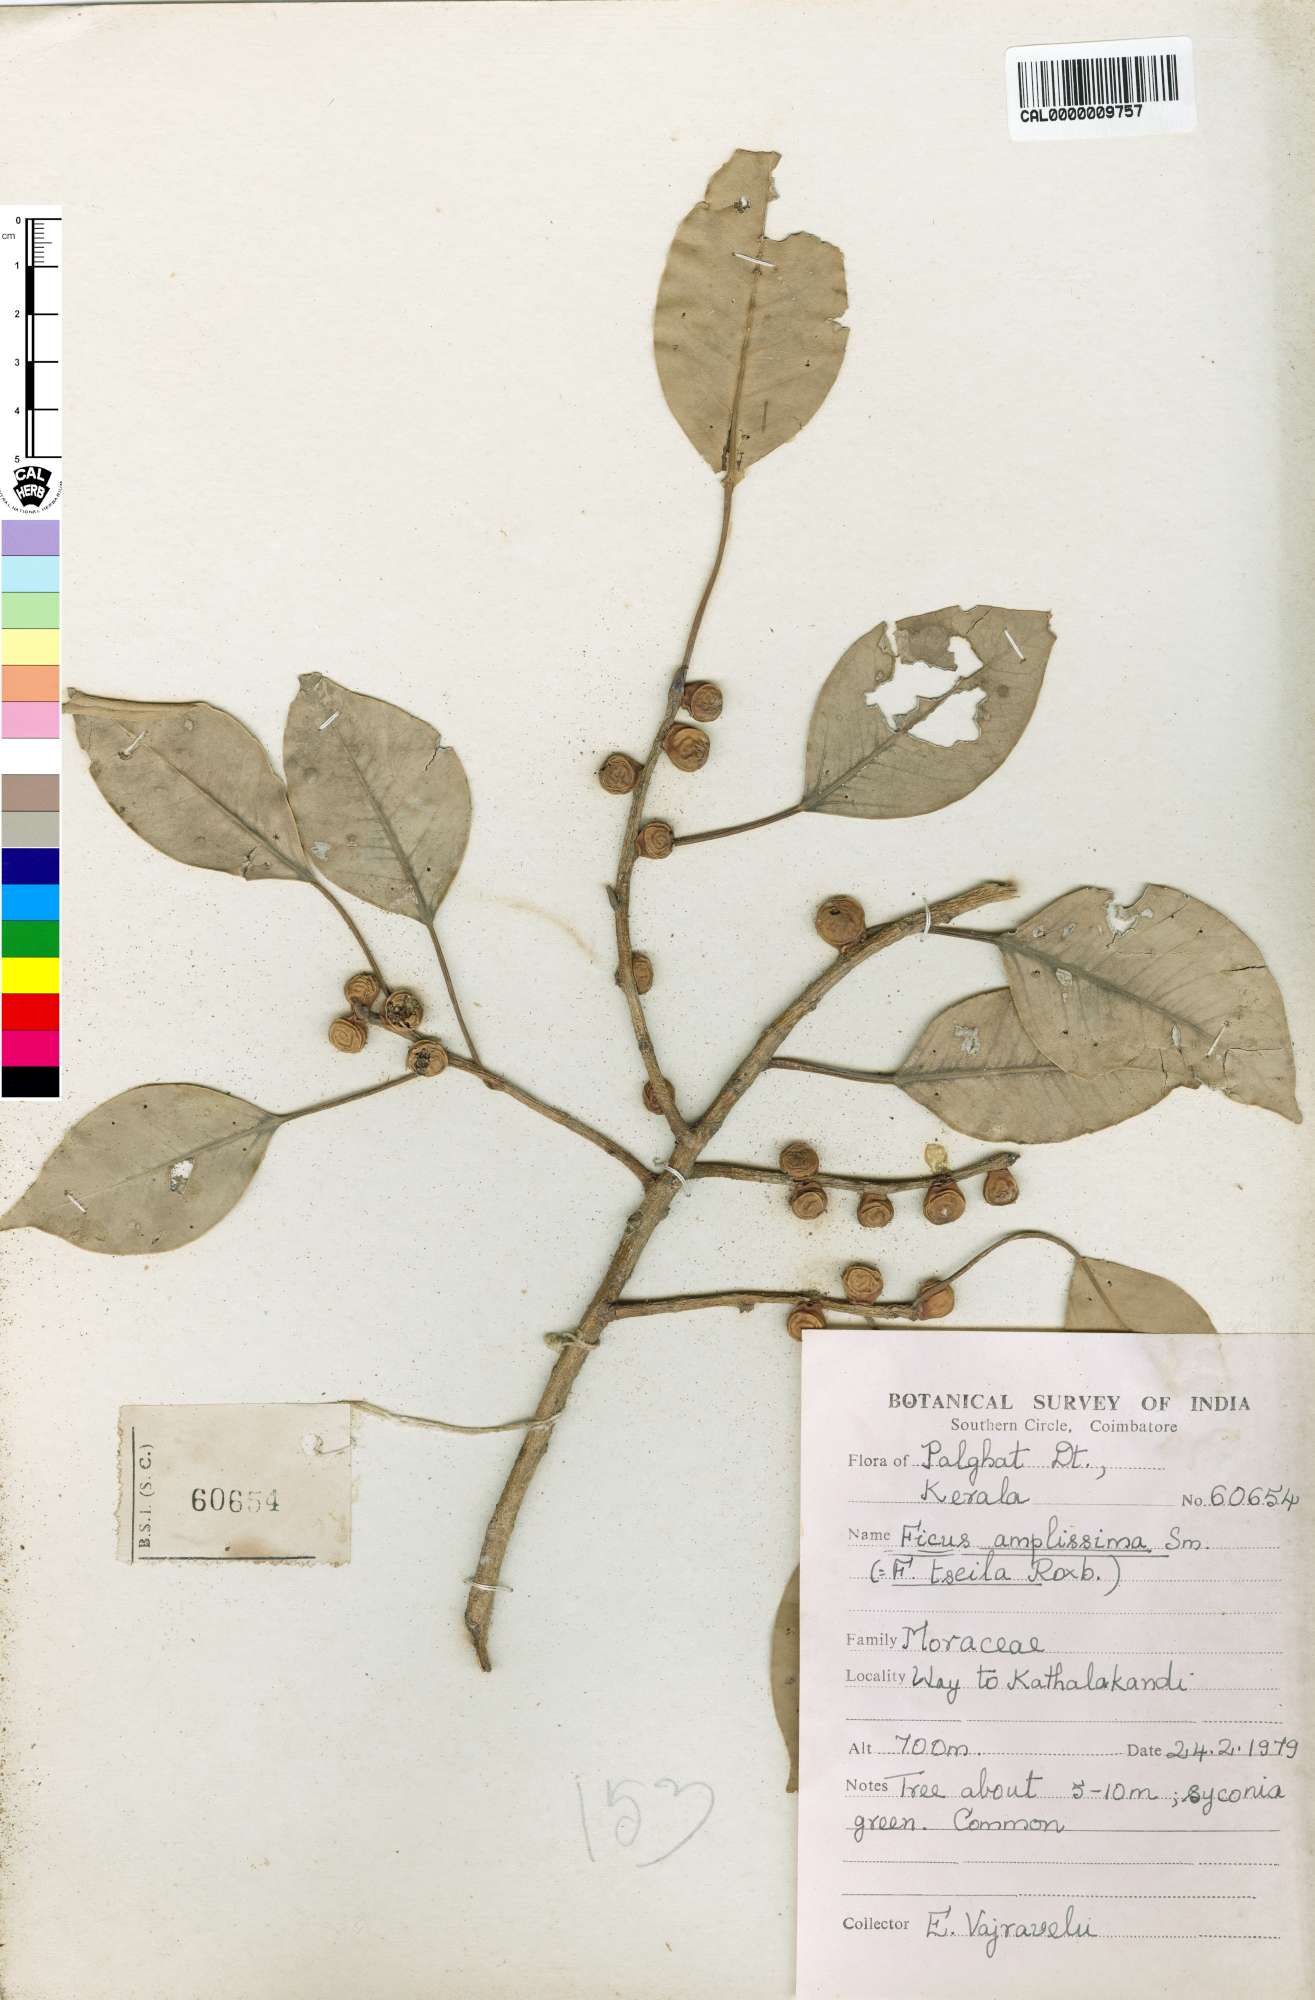 CAL0000009757
0
cm
1
2
3
4
5
CAL
HERB
B.S.I. (S. C.)
60654
BOTANICAL SURVEY OF INDIA
Southern Circle, Coimbatore
Flora of Palghat Dt.,
Kerala No. 60654
Name Ficus amplissima Sm.
(= F. tseila Roxb.)
Family Moraceae
Locality Way to Kathalakandi
Alt 700m. Date 24.2.1979
Notes Tree about 5-10m; syconia
green. Common
Collector E. Vajravelu
153